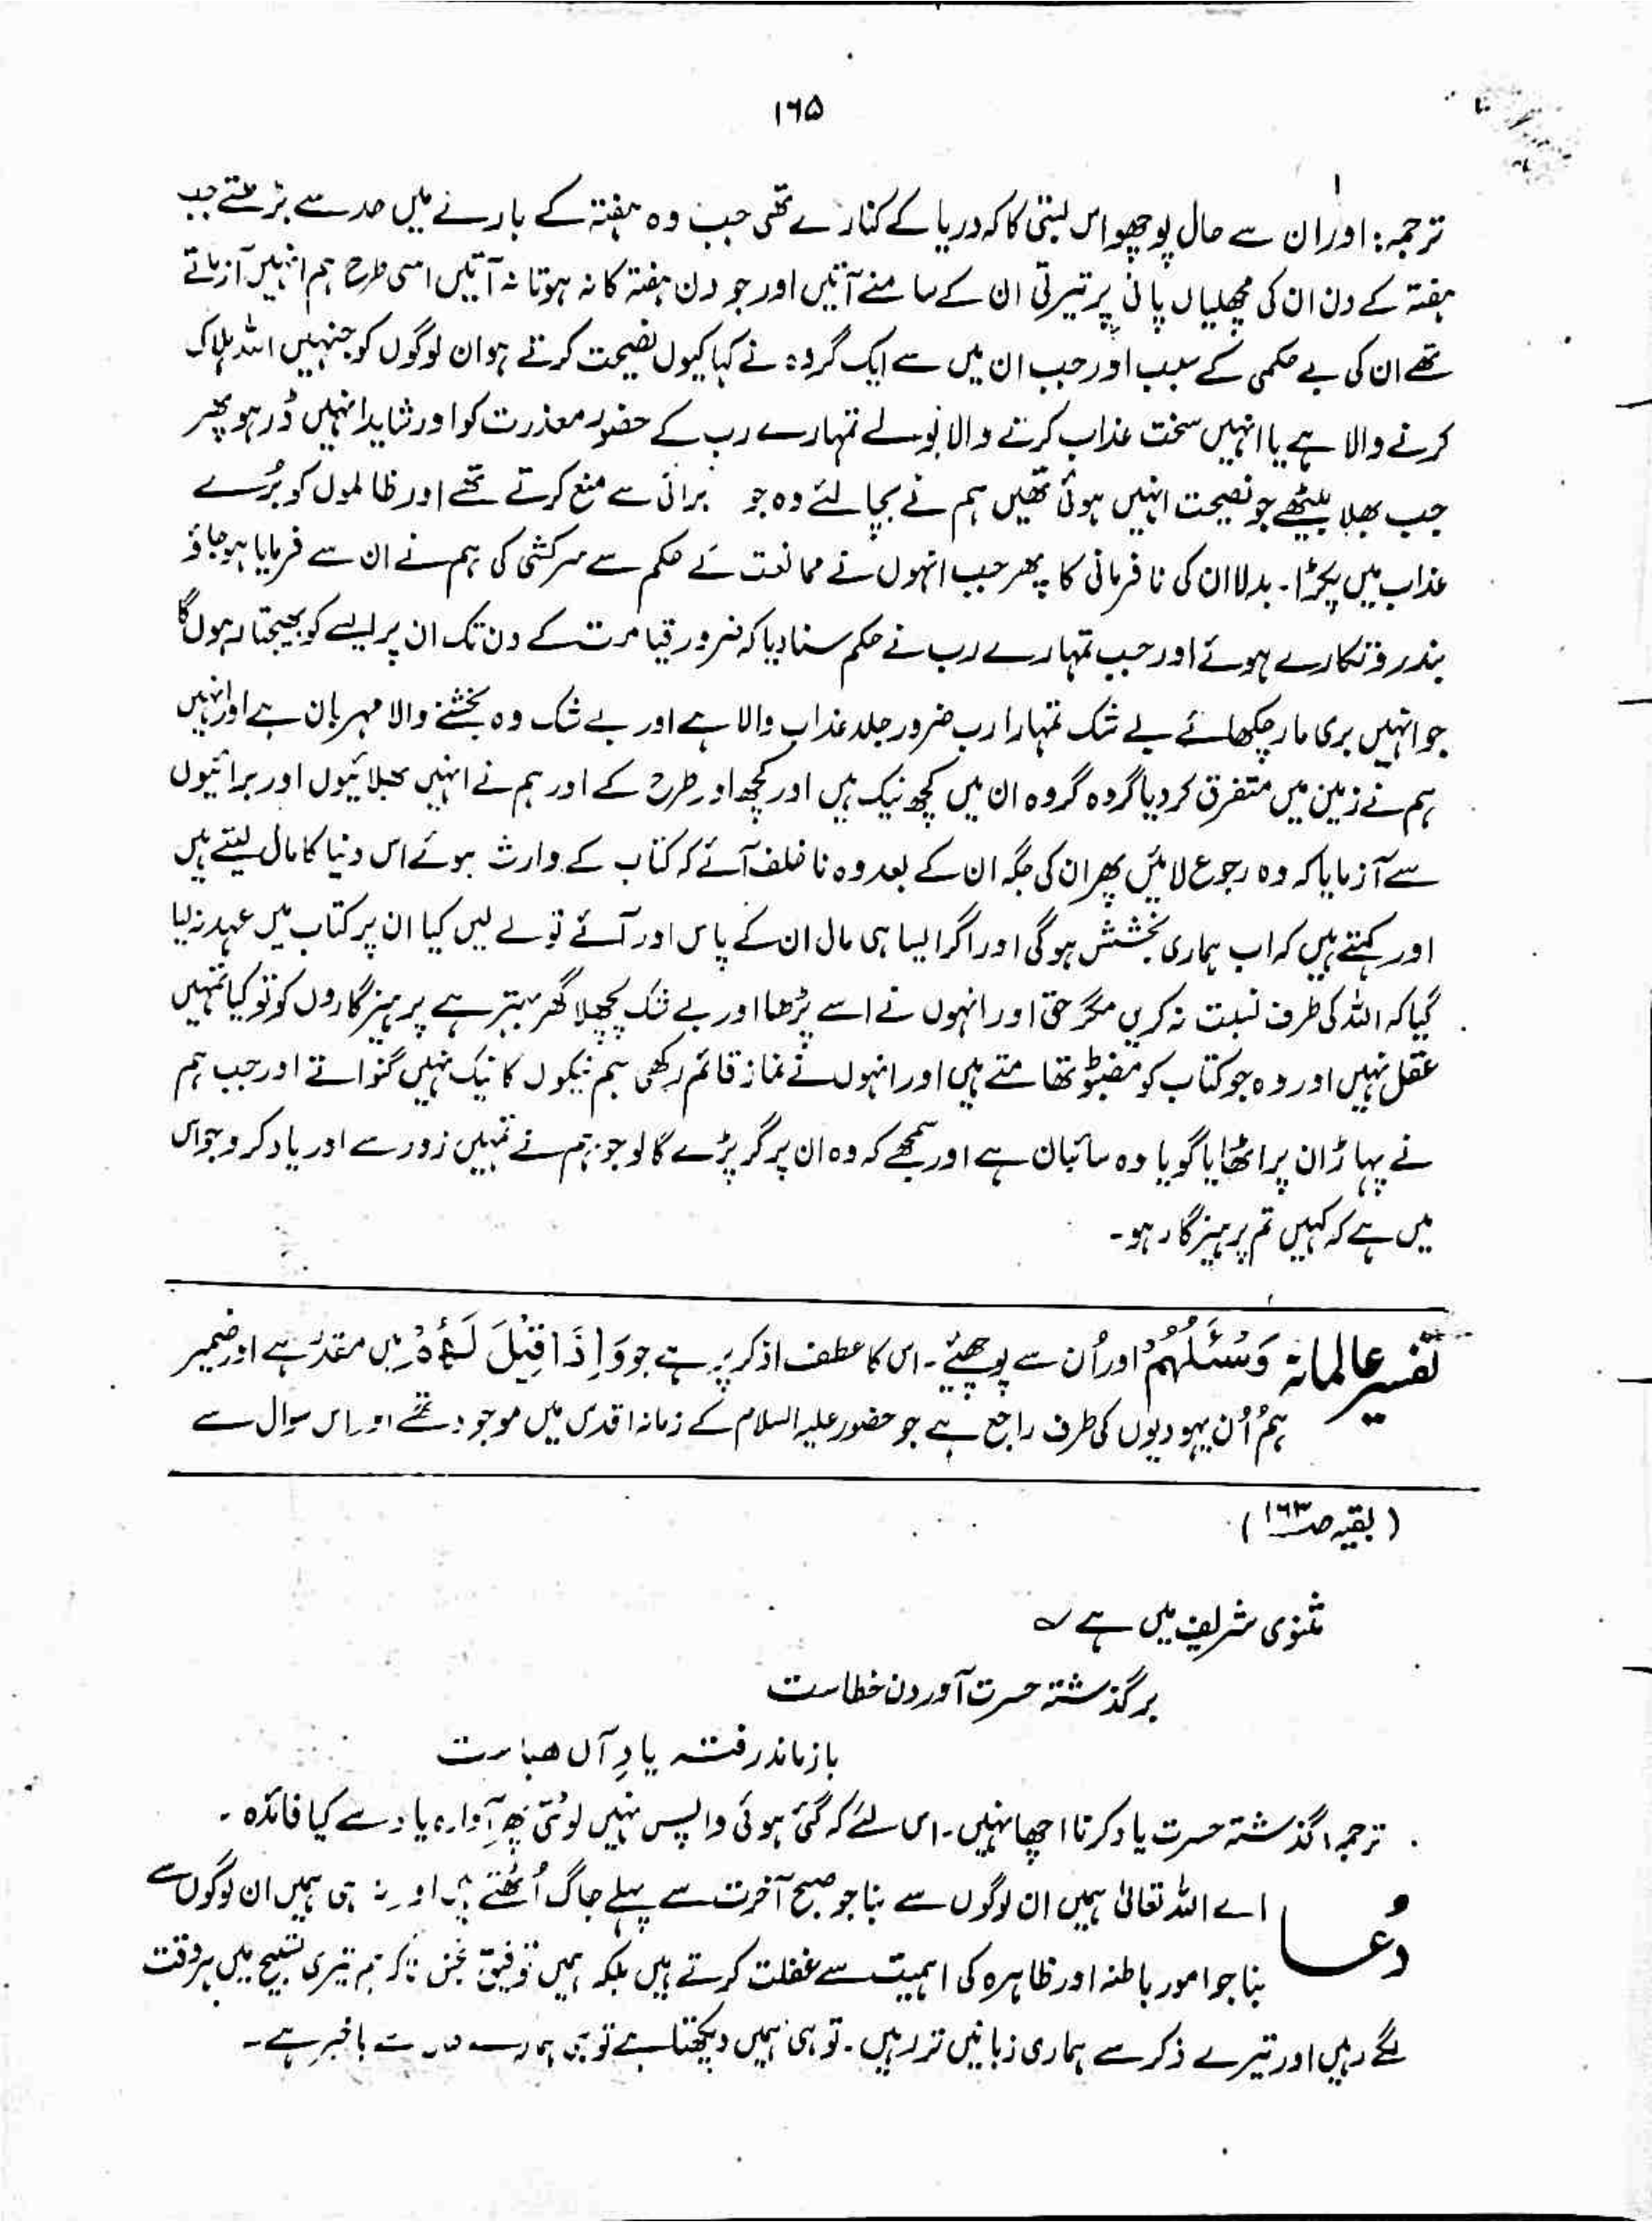 ۱۶۵
ترجمہ: اور ان سے حال پوچھو اس بستی کا کہ دریا کے کنارے تھی جب وہ ہفتہ کے بارے میں حد سے بڑھتے جب
ہفتہ کے دن ان کی مچھلیاں پانی پر تیرتی ان کے سامنے آتیں اور جو دن ہفتہ کا نہ ہوتا نہ آتیں اسی طرح ہم انہیں آزماتے
تھے ان کی بے حکمی کے سبب اور جب ان میں سے ایک گروہ نے کہا کیوں نصیحت کرتے ہو ان لوگوں کو جنہیں اللہ ہلاک
کرنے والا ہے یا انہیں سخت عذاب کرنے والا بولے تمہارے رب کے حضور معذرت کو اور شاید انہیں ڈر ہو پھر
جب بھلا بیٹھے جو نصیحت انہیں ہوئی تھیں ہم نے بچا لئے وہ جو برائی سے منع کرتے تھے اور ظالموں کو بُرے
عذاب میں پکڑا۔ بدلا ان کی نافرمانی کا پھر جب انہوں نے ممانعت کے حکم سے سرکشی کی ہم نے ان سے فرمایا ہو جاؤ
بندر دُتکارے ہوئے اور جب تمہارے رب نے حکم سنا دیا کہ ضرور قیامت کے دن تک ان پر ایسے کو بھیجتا رہوں گا
جو انہیں بری مار چکھائے بے شک تمہارا رب ضرور جلد عذاب والا ہے اور بے شک وہ بخشنے والا مہربان ہے اور انہیں
ہم نے زمین میں متفرق کر دیا گروہ گروہ ان میں کچھ نیک ہیں اور کچھ اور طرح کے اور ہم نے انہیں بھلائیوں اور برائیوں
سے آزمایا کہ وہ رجوع لائیں پھر ان کی جگہ ان کے بعد وہ ناخلف آئے کہ کتاب کے وارث ہوئے اس دنیا کا مال لیتے ہیں
اور کہتے ہیں کہ اب ہماری بخشش ہو گی اور اگر ایسا ہی مال ان کے پاس اور آئے تو لے لیں کیا ان پر کتاب میں عہد نہ لیا
گیا کہ اللہ کی طرف نسبت نہ کریں مگر حق اور انہوں نے اسے پڑھا اور بے شک پچھلا گھر بہتر ہے پرہیزگاروں کو تو کیا تمہیں
عقل نہیں اور وہ جو کتاب کو مضبوط تھامتے ہیں اور انہوں نے نماز قائم رکھی ہم نیکوں کا نیگ نہیں گنواتے اور جب ہم
نے پہاڑ ان پر اٹھایا گویا وہ سائبان ہے اور سمجھے کہ وہ ان پر گر پڑے گا لو جو ہم نے تمہیں زور سے اور یاد کرو جو اس
میں ہے کہ کہیں تم پرہیزگار ہو۔
تفسیر عالمانہ وَسْئَلْهُمْ اور اُن سے پوچھئے۔ اس کا عطف اذکر پر ہے جو وَاِذَا قِیْلَ لَهُمْ میں مقدر ہے اور ضمیر
ہُمْ اُن یہودیوں کی طرف راجع ہے جو حضور علیہ السلام کے زمانہ اقدس میں موجود تھے اور اس سوال سے
(بقیہ صہ ۱۶۳)
مثنوی شریف میں ہے ؎
بر گذشتہ حسرت آوردن خطاست
باز ماند رفتہ یادِ آں ھباست
ترجمہ: گذشتہ حسرت یاد کرنا اچھا نہیں۔ اس لئے کہ گئی ہوئی واپس نہیں لوٹتی پھر آوارہ یاد سے کیا فائدہ۔
دُعا اے اللہ تعالیٰ ہمیں ان لوگوں سے بنا جو صبح آخرت سے پہلے جاگ اُٹھتے ہیں اور نہ ہی ہمیں ان لوگوں سے
بنا جو امور باطنہ اور ظاہرہ کی اہمیت سے غفلت کرتے ہیں بلکہ ہمیں توفیق بخش تاکہ ہم تیری تسبیح میں ہر وقت
لگے رہیں اور تیرے ذکر سے ہماری زبانیں تر رہیں۔ تو ہی ہمیں دیکھتا ہے تو ہی ہمارے باخبر ہے۔